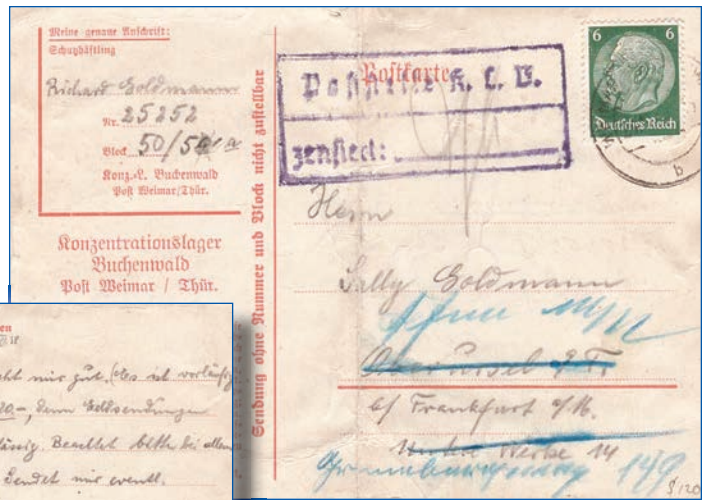 Meine genaue Anschrift:
Schutzhäftling
Richard Goldmann
Nr. 25252
Block 50/50
Konz.-L. Buchenwald
Post Weimar/Thür.
Konzentrationslager
Buchenwald
Post Weimar / Thür.
Sendung ohne Nummer und Block nicht zustellbar
Postkarte
Poststelle K. L. B.
zensiert:
6 6
Deutsches Reich
b
Herrn
Sally Goldmann
Oberursel a. T.
b/ Frankfurt a/M.
Untere Werke 14
149
$120
en
geht mir gut, es ist vorläufig
20.-, denn Geldsendungen
lässig. Beachtet bitte bei allem
Sendet mir eventl.